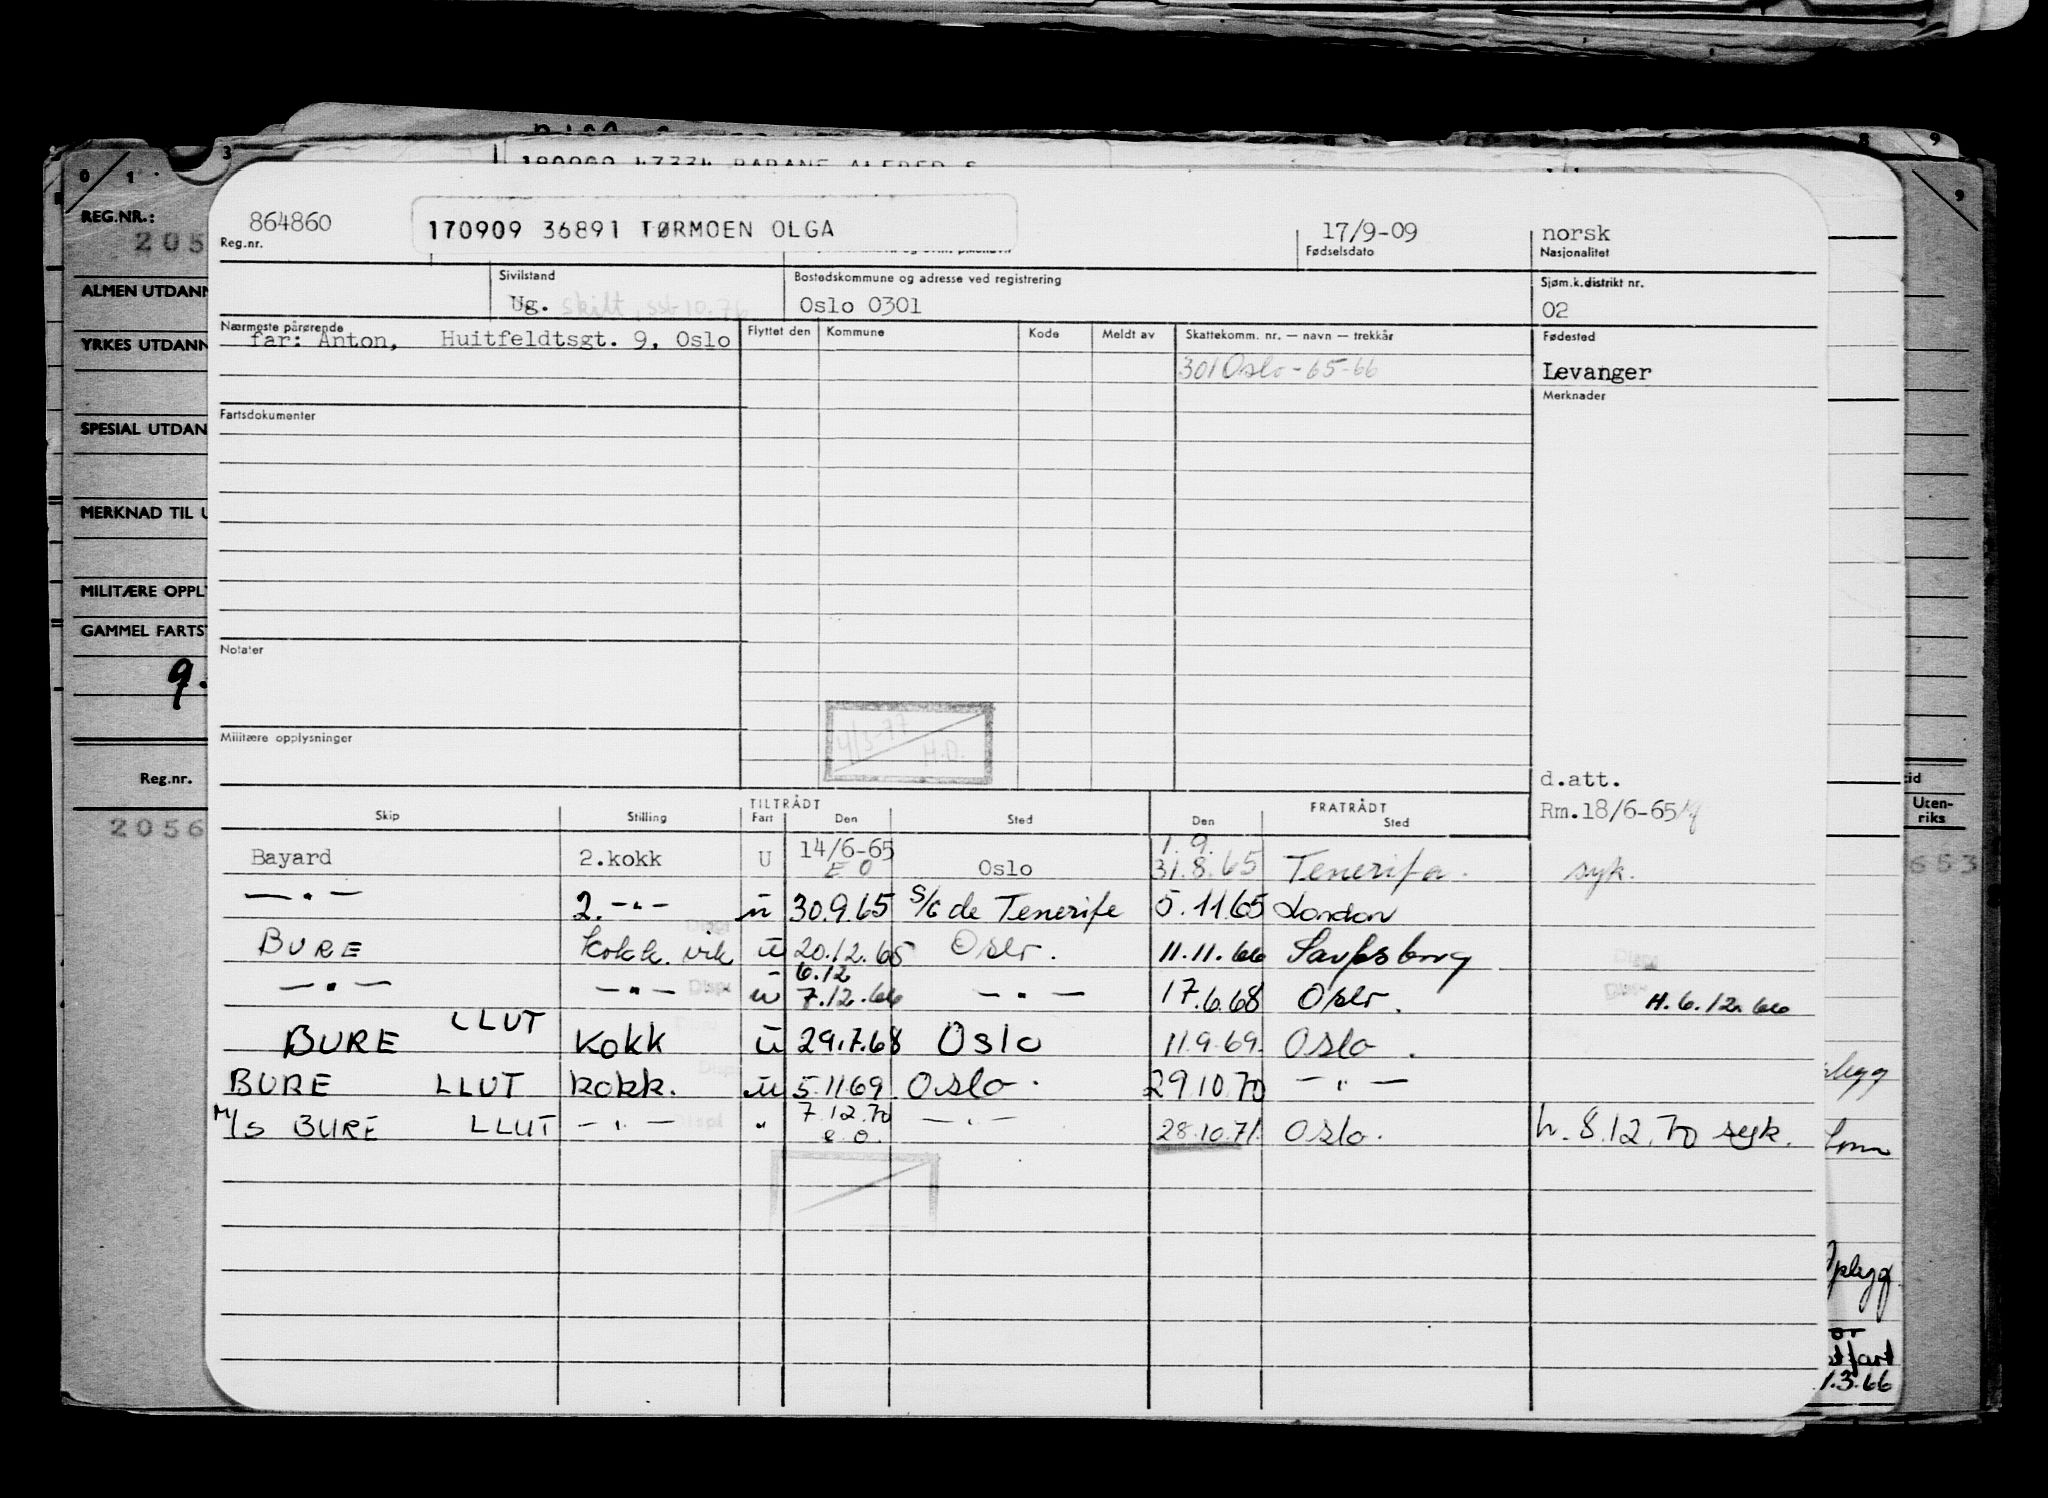 180909 47334 BARANE ALFRED S
REG.NR.:
205
ALMEN UTDANN
YRKES UTDANN
SPESIAL UTDAN
MERKNAD TIL U
MILITÆRE OPPLY
GAMMEL FARTS
9.
Reg.nr.
2056
864860
Reg.nr.
170909 36891 TØRMOEN OLGA
17/9-09
Fødselsdato
norsk
Nasjonalitet
Sivilstand
Ug. skilt, sst 10.76
Bostedskommune og adresse ved registrering
Oslo 0301
Sjøm.k.distrikt nr.
02
Nærmeste pårørende
far: Anton, Huitfeldtsgt. 9, Oslo
Flyttet den Kommune Kode Meldt av Skattekomm. nr. — navn — trekkår
301 Oslo - 65-66
Fødested
Levanger
Merknader
Fartsdokumenter
Notater
4/3-77
H.O.
Militære opplysninger
d.att.
Rm.18/6-65
TILTRÅDT FRATRÅDT
Skip Stilling Fart Den Sted Den Sted
Bayard 2.kokk U 14/6-65 E O Oslo 1.9. 31.8.65 Tenerifa. syk.
— " — 2. -"- u 30.9.65 S/C de Tenerife 5.11.65 London
BURE kokk. vik u 20.12.65 Oslo. 11.11.66 Sarpsborg
— " — — " — u 6.12 7.12.66 — " — 17.6.68 Oslo. H. 6.12.66
BURE LLUT kokk u 29.7.68 Oslo 11.9.69. Oslo.
BURE LLUT kokk. u 5.11.69 Oslo. 29.10.70 — " —
M/S BURE LLUT — " — " 7.12.70 e.o. — " — 28.10.71. Oslo. h. 8.12.70 syk.
Uten-
riks
653
1.3.66